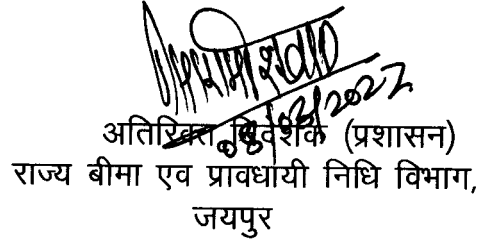 अतिरिक्त निदेशक (प्रशासन)
राज्य बीमा एव प्रावधायी निधि विभाग,
जयपुर